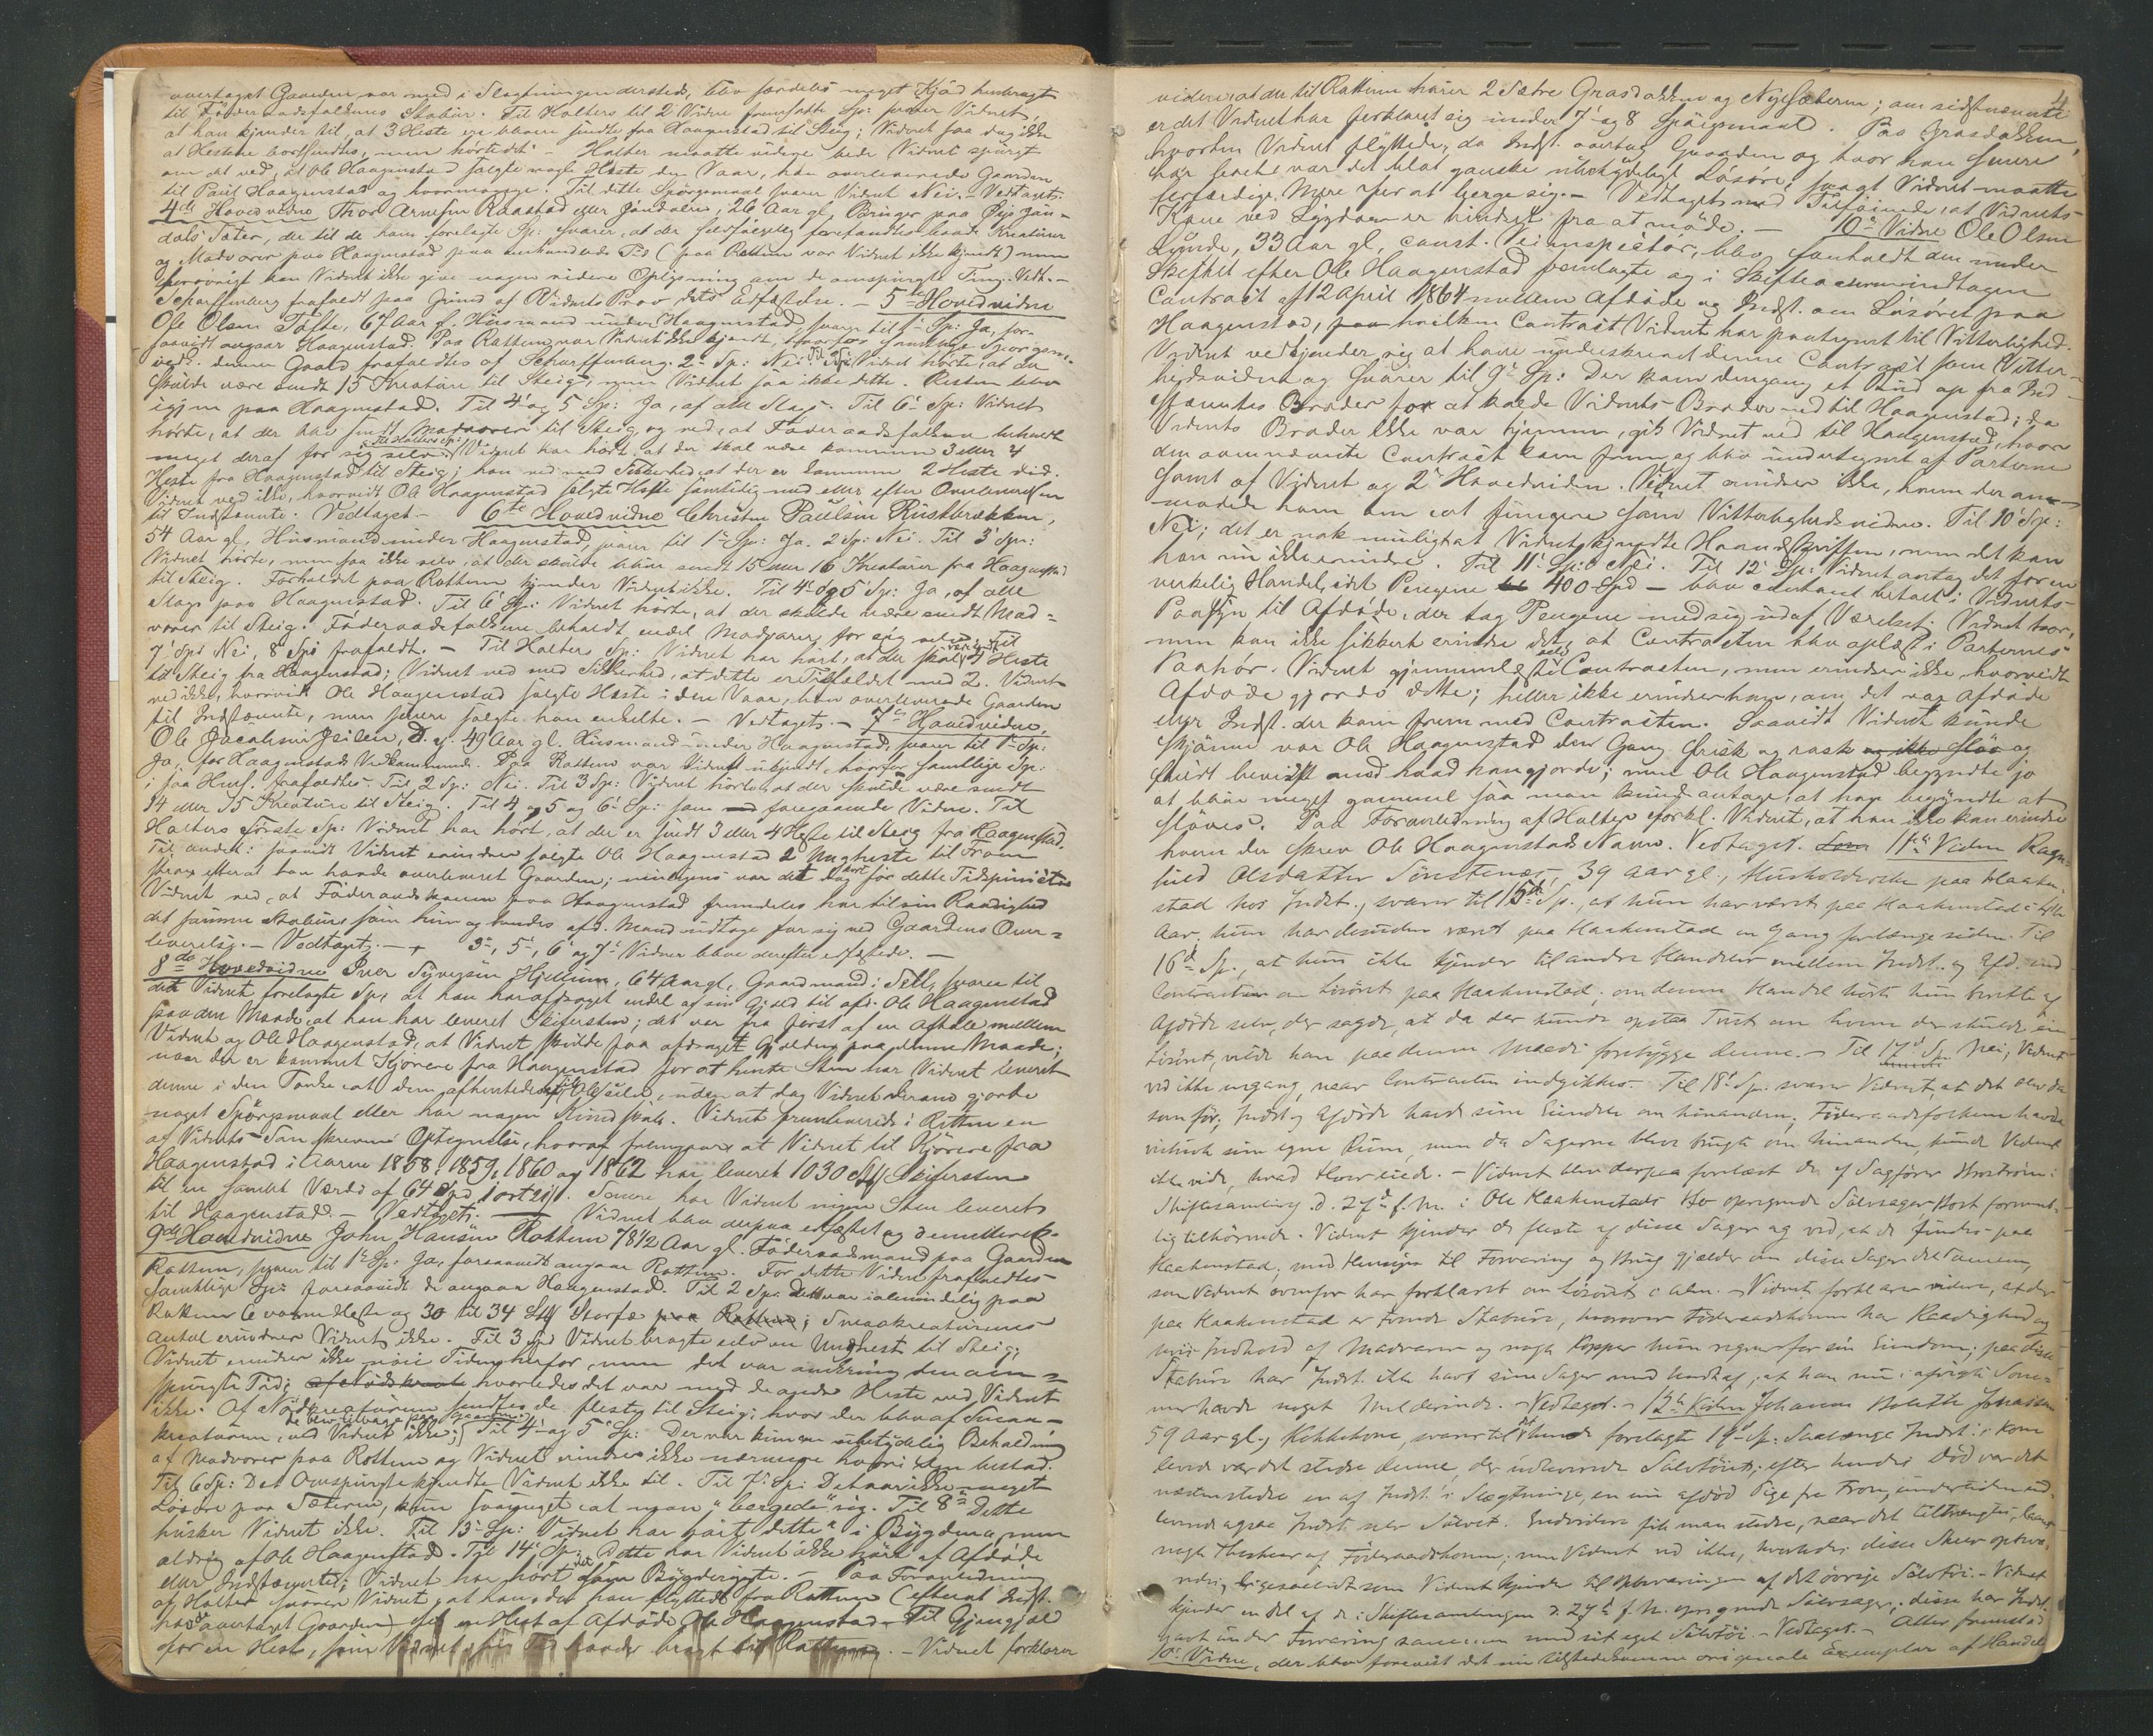 overtaget Gaarden var med i Slagtningen dersteds, blev særdeles meget Kjød henbragt
til Föderaadsfolkenes Stabur. Til Halters til 2 Vidne fremsatte Sp: svarer Vidnet,
at han kjender til, at 3 Heste ere blevne sendte fra Haagenstad til Steig; Vidnet saa dog ikke
at Hestene bortsendtes, men hørte det. - Halter maatte videre bede Vidnet spurgt
om det ved, at Ole Haagenstad solgte nogle Heste den Vaar, han overleverede Gaarden
til Paul Haagenstad og hvormange. Til dette Spörgsmaal svarer Vidnet Nei. - Vedtaget. -
4de Hovedvidne Thor Arnesen Raastad eller Jöndalen, 26 Aar gl, Bruger paa Öyi Jön-
dals Sæter, der til de ham forelagte Sp: svarer, at der selvfølgelig forefandtes baade Kreaturer
og Madvarer paa Haagenstad paa omhandlede Tid (paa Rottum var Vidnet ikke kjendt) men
forøvrigt kan Vidnet ikke give nogen videre Oplysning om de omspurgte Ting. Vedt. -
Scharffenberg frafaldt paa Grund af Vidnets Prov dets Edfæstelse. - 5te Hovedvidne
Ole Olsen Tofte, 67 Aar gl. Husmand under Haagenstad, svarer til 1 Sp: Ja, for-
saavidt angaar Haagenstad. Paa Rottum var Vidnet ikke kjendt, hvorfor samtlige Spörgsm:
ved: denne Gaard frafaldtes af Scharffenberg. 2 Sp: Nei. Til 3 Sp: Vidnet hørte, at der
skulde være sendt 15 Kreature til Steig, men Vidnet saa ikke dette. Resten blev
igjen paa Haagenstad. Til 4 og 5 Sp: Ja, af alle Slags. Til 6 Sp: Vidnet
hørte, at der blev sendt Madvarer til Steig og ved, at Föderaadsfolkene beholdt
meget deraf for sig selv. Til Halters Sp: Vidnet har hørt, at der skal være kommen 3 eller 4
Heste fra Haagenstad til Steig; han ved med Sikkerhed, at der er kommen 2 Heste did.
Vidnet ved ikke, hvorvidt Ole Haagenstad solgte Heste samtidig med eller efter Overleverelsen
til Indstævnte. Vedtaget. - 6te Hovedvidne Christen Paulsen Rustbrækken,
54 Aar gl, Husmand under Haagenstad, svarer til 1 Sp: Ja. 2 Sp: Nei. Til 3 Sp:
Vidnet hørte, men saa ikke selv, at der skulde blive sendt 15 eller 16 Kreaturer fra Haagenstad
til Steig. Forholdet paa Rottum kjender Vidnet ikke. Til 4 og 5 Sp: Ja, af alle
Slags paa Haagenstad. Til 6 Sp: Vidnet hørte, at der skulde være sendt Mad-
varer til Steig. Föderaadsfolkene beholdt endel Madvarer for sig selv. Til
7 Sp: Nei, 8 Sp: frafaldt. - Til Halters Sp: Vidnet har hørt, at der skal være sendt Heste
til Steig fra Haagenstad; Vidnet ved med Sikkerhed, at dette er Tilfældet med 2. Vidnet
ved ikke, hvorvidt Ole Haagenstad solgte Heste i den Vaar, han overleverede Gaarden
til Indstævnte, men senere solgte han enkelte. - Vedtaget. - 7de Hovedvidne,
Ole Jacobsen Jeilen, 49 Aar gl. Husmand under Haagenstad, svarer til 1 Sp:
Ja, for Haagenstads Vedkommende. Paa Rottum var Vidnet ubekjendt, hvorfor samtlige Sp:
i saa Hens. frafaldtes. Til 2 Sp: Nei. Til 3 Sp: Vidnet hørte, at der skulde være sendt
14 eller 15 Kreature til Steig. Til 4 og 5 og 6 Sp: som foregaaende Vidne. Til
Halters første Sp: Vidnet har hørt, at der er sendt 3 eller 4 Heste til Steig fra Haagenstad.
Til andet: saavidt Vidnet erindrer solgte Ole Haagenstad 2 Ungheste til Fron
strax efterat han havde overleveret Gaarden; nærmere var det dog før dette Tidspunct.
Vidnet ved, at Föderaadskonen paa Haagenstad fremdeles har til sin Raadighed
det samme Stabur, som hun og hendes afd. Mand undtoge for sig ved Gaardens Over-
leverelse. - Vedtaget. - 3, 5, 6 og 7 Vidner bleve derefter edfæstede. -
8de Hovedvidne Iver Syversen Hjellum, 64 Aar gl, Gaardmand i Sell, svarer til
det Vidnet forelagte Sp:, at han har afdraget endel af sin Gjæld til afd. Ole Haagenstad
paa den Maade, at han har leveret Skifersten; det var fra først af en Aftale mellem
Vidnet og Ole Haagenstad, at Vidnet skulde faa afdraget Gjælden paa denne Maade;
naar der er kommet Kjørere fra Haagenstad for at hente Sten har Vidnet leveret
denne i den Tanke, at dem afhentedes til Ole selv, uden at dog Vidnet derom gjorde
noget Spørgsmaal eller har nogen Kundskab. Vidnet fremleverede i Retten en
af Vidnets Søn skreven Optegnelse, hvoraf fremgaar at Vidnet til Kjørere fra
Haagenstad i Aarene 1858, 1859, 1860 og 1862 har leveret 1030 Stk Skifersten
til en samlet Værdi af 64 Spd 1 ort 21 s. Senere har Vidnet ingen Sten leveret
til Haagenstad. - Vedtaget. - Vidnet blev derpaa edfæstet og demitteret.
9de Hovedvidne John Hansen Rottum 78½ Aar gl. Föderaadsmand paa Gaarden
Rottum, svarer til 1 Sp: Ja, forsaavidt angaar Rottum. For dette Vidne frafaldtes
samtlige Sp: forsaavidt de angaar Haagenstad. Til 2 Sp: Det var i almindelig paa
Rottum 6 voxne Heste og 30 til 34 Stk Storfæ; Smaakreaturenes
Antal erindrer Vidnet ikke. Til 3 Sp: Vidnet bragte selv en Unghest til Steig;
Vidnet erindrer ikke nøie Tiden herfor, men det var omkring den om-
spurgte Tid; hvorledes det var med de andre Heste ved Vidnet
ikke. Af Nødkreaturene sendtes de fleste til Steig; hvor der blev af Smaa-
kreaturene, ved Vidnet ikke; de blev tilbage paa Gaarden. Til 4 og 5 Sp: Der var kun en ubetydelig Beholdning
af Madvarer paa Rottum og Vidnet erindrer ikke nærmere hvori den bestod.
Til 6 Sp: Det Omspurgte kjendte Vidnet ikke til. Til 7 Sp: Det var ikke meget
Løsøre paa Sæteren, kun saameget at man "bergede" sig. Til 8 Dette
husker Vidnet ikke. Til 13 Sp: Vidnet har hørt dette i Bygden, men
aldrig af Ole Haagenstad. Til 14 Sp: Dette har Vidnet ikke hørt af Afdøde
eller Indstævnte; Vidnet har hørt det som Bygderygte. - Paa Foranledning
af Halter svarer Vidnet, at han, da han flyttede fra Rottum (efterat Indst.
havde overtaget Gaarden) fik en Hest af Afdøde Ole Haagenstad til Gjengjæld
for en Hest, som Vidnet havde bragt til Rottum. - Vidnet forklarer
4
videre, at der til Rottum hører 2 Sætre Grasdokken og Nysæteren; om sidstnævnte
er det Vidnet har forklaret sig under 7 og 8 Spörgsmaal. Paa Grasdokken,
hvorhen Vidnet flyttede, da Indst. overtog Gaarden og hvor han senere
har været var det blot ganske ubetydeligt Løsøre, saa at Vidnet maatte
færdige Mere for at berge sig. - Vedtaget med Tilføiende, at Vidnets
Kone ved Sygdom er hindret fra at møde. - 10de Vidne Ole Olsen
Lynde, 33 Aar gl, const. Veiinspectör, blev foreholdt den under
Skiftet efter Ole Haagenstad fremlagte og i Skifteacterne indtagen
Contract af 12 April 1864 mellem Afdøde og Indst. om Løsøret paa
Haagenstad, hvilken Contract Vidnet har paategnet til Vitterlighed.
Vidnet vedkjender sig at have underskrevet denne Contract som Vitter-
lighedsvidne og svarer til 9 Sp: Der kom dengang et Bud op fra Ind-
stævntes Broder for at kalde Vidnets Broder ned til Haagenstad; da
Vidnets Broder ikke var hjemme, gik Vidnet ned til Haagenstad, hvor
den omnævnte Contract kom frem og blev undertegnet af Parterne
samt af Vidnet og 2 Hovedvidne. Vidnet erindrer ikke, hvem der an-
modede ham om at fungere som Vitterlighedsvidne. Til 10 Sp:
Nei; det er nok muligt at Vidnet kjendte Haandskriften, men det kan
han nu ikke erindre. Til 11 Sp: Nei. Til 12 Sp: Vidnet antog det for en
virkelig Handel, idet Pengene 400 Spd - blev contant betalt i Vidnets
Paasyn til Afdøde, der tog Pengene med sig ud af Værelset. Vidnet tror,
men kan ikke sikkert erindre det, at Contracten blev oplæst i Parternes
Paahør. Vidnet gjennemlæste selv Contracten, men erindrer ikke, hvorvidt
Afdøde gjorde dette; heller ikke erindrer han, om det var Afdøde
eller Indst. der kom frem med Contracten. Saavidt Vidnet kunde
skjønne var Ole Haagenstad den Gang frisk og rask og ikke sløv og
fuldt bevidst med hvad han gjorde; men Ole Haagenstad begyndte jo
at blive meget gammel saa man kunde antage, at han begyndte at
sløves. Paa Foranledning af Halter forkl. Vidnet, at han ikke kan erindre
hvem der skrev Ole Haagenstads Navn. Vedtaget. 11te Vidne Ragn-
hild Olsdatter Sønstenæs, 39 Aar gl., Husholderske paa Haaken-
stad hos Indst., svarer til 15d Sp., at hun har været paa Haakenstad i
Aar, hun har desuden været paa Haakenstad en Gang for længe siden. Til
16d Sp., at hun ikke kjender til andre Handeler mellem Indst. og Afd. end
Contracten om Løsöret paa Haakenstad; om denne Handel hørte hun berette af
Afdøde selv, der sagde, at da der kunde opstaa Tvist om hvem der skulde eie
Løsöret, vilde han paa denne Maade forebygge denne. - Til 17d Sp. Nei; Vidnet
ved ikke engang, naar Contracten indgikkes. Til 18d Sp. svarer Vidnet, at det blev da
som før; Indst. og Afdøde havde sine Eiendele om hinanden; Föderaadsfolkene havde
vistnok sine egne Rum, men da Sagerne bleve brugte om hinanden, kunde Vidnet
ikke vide, hvad Hver eiede. - Vidnet blev derpaa forelæst de af Sagfører
Skiftesamling d. 27d f. M. i Ole Haakenstads Bo opregnede Sølvsager Boet forment-
lig tilhörende. Vidnet kjender de fleste af disse Sager og ved, at de findes paa
Haakenstad; med Hensyn til Forvaring og Brug gjælder om disse Sager det samme,
som Vidnet ovenfor har forklaret om Løsöret i Alm. - Vidnet forklarer videre, at der
paa Haakenstad er tvende Stabure, hvorover Föderaadskonen har Raadighed og
hvis Indhold af Madvarer og nogle Kopper hun regner for sin Eiendom; paa disse
Stabure har Indst. ikke havt sine Sager med Undtag af, at han nu i afvigte Som-
mer havde noget Meel derinde. - Vedtaget. - 12te Vidne Johanne Jonassen
59 Aar gl., Kokkekone, svarer til det hende forelagte 19d Sp. Saalænge Indst.s Kone
levede var det stedse denne, der udleverede Sølvtöiet; efter hendes Død var det
næsten stedse en af Indst.s Slægtninge, en nu afdød Pige fra Fron, undertiden ud-
leverede ogsaa Indst. selv Sølvet. Endvidere fik man stedse, naar det tiltrængtes, laane
nogle Theskeer af Föderaadskonen; men Vidnet ved ikke, hvorledes disse Skeer opbeva-
redes, ligesaalidt som Vidnet kjender til Opbevaringen af det øvrige Sølvtöi. - Vidnet
kjender en Del af de i Skiftesamlingen d. 27d f. M. opregnede Sølvsager; disse har Indst.
havt under Forvaring sammen med sit eget Sølvtöi. - Vedtaget. - Atter fremstod
10d Vidne, der blev forevist det nu tilstedekomne originale Exemplar af Handel